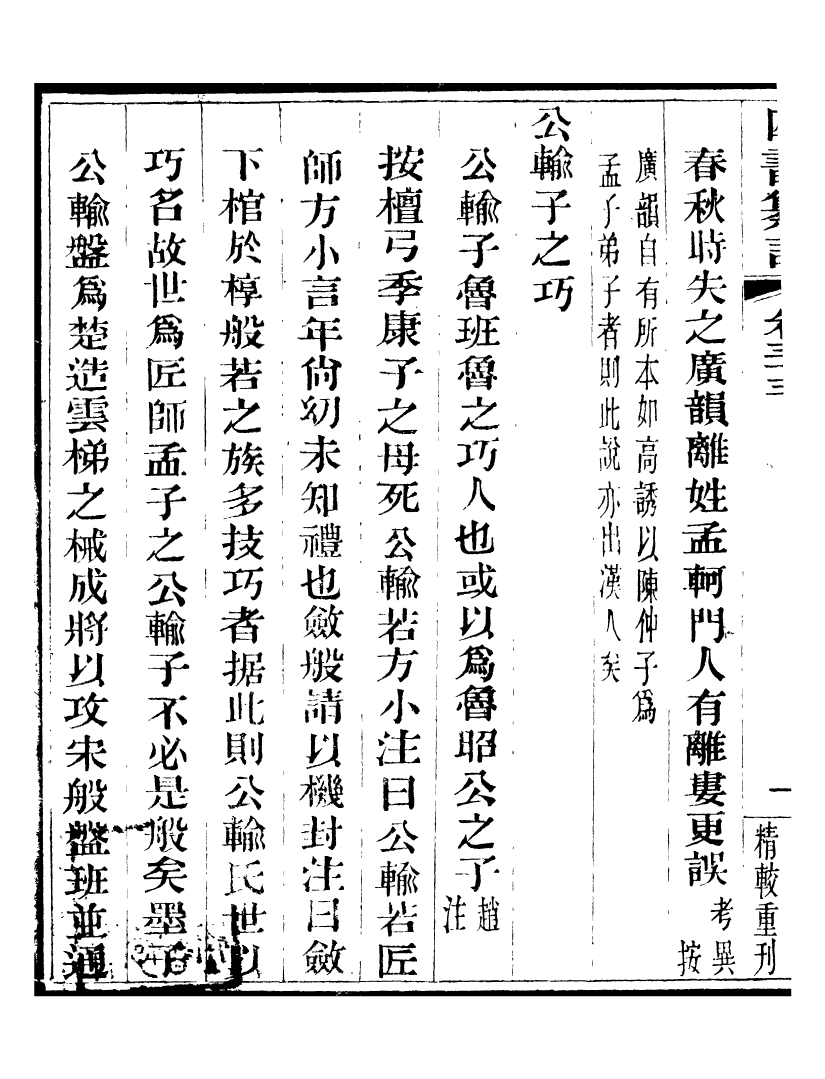 四書纂言 卷三十三 一 精較重刊
春秋時失之廣韻離姓孟軻門人有離婁更誤考異按
廣韻自有所本如高誘以陳仲子爲
孟子弟子者則此說亦出漢人矣
公輸子之巧
公輸子魯班魯之巧人也或以爲魯昭公之子趙注
按檀弓季康子之母死公輸若方小注曰公輸若匠
師方小言年尙幼未知禮也斂般請以機封注曰斂
下棺於椁般若之族多技巧者据此則公輸氏世以
巧名故世爲匠師孟子之公輸子不必是般矣墨子
公輸盤爲楚造雲梯之械成將以攻宋般盤班並通